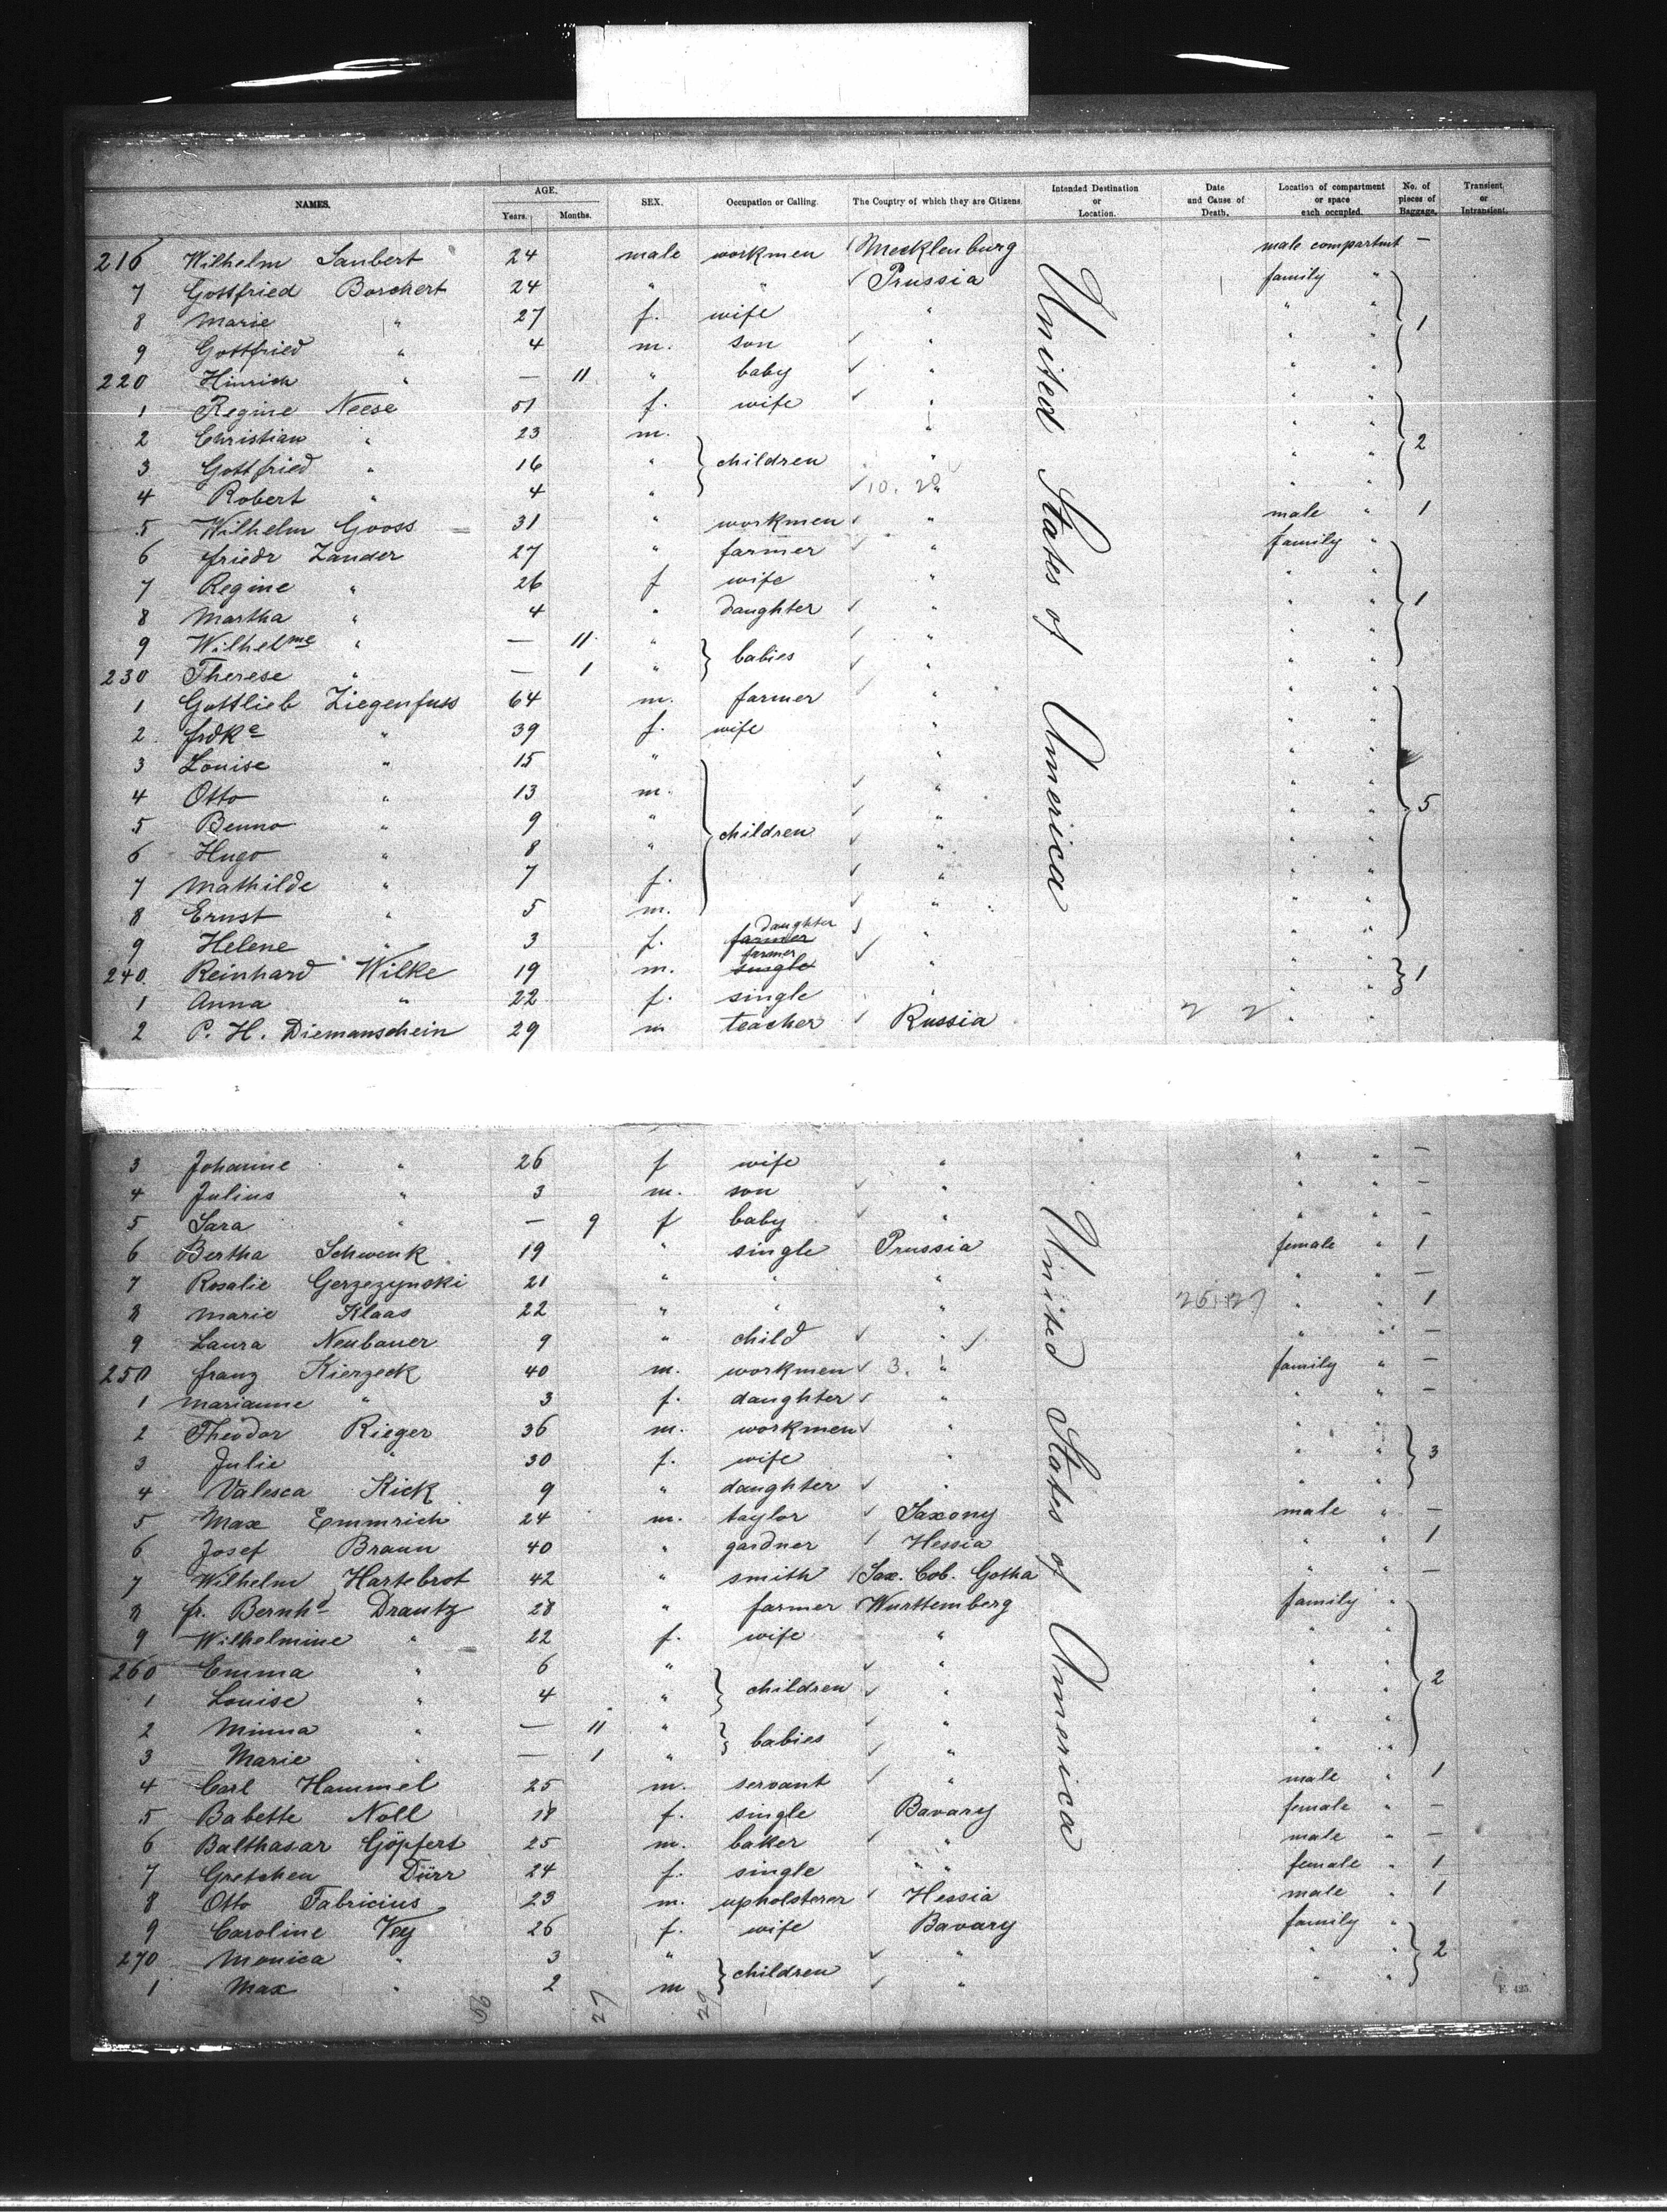 NAMES. AGE. Years. Months. SEX. Occupation or Calling. The Country of which they are Citizens. Intended Destination or Location. Date and Cause of Death. Location of compartment or space each occupied. No. of pieces of Baggage. Transient or Intransient.
216 Wilhelm Saubert 24 male workmen Mecklenburg male compartmt —
7 Gottfried Borchert 24 " " Prussia family "
8 Marie " 27 f. wife " " "
9 Gottfried " 4 m. son " " " 1
220 Hinrich " — 11 " baby " " "
1 Regine Neese 51 f. wife " " "
2 Christian " 23 m. " " " 2
3 Gottfried " 16 " children " " "
4 Robert " 4 " 10. 2 " " "
5 Wilhelm Gooss 31 " workmen " male " 1
6 Friedr Zander 27 " farmer " family "
7 Regine " 26 f wife " " "
8 Martha " 4 " daughter " " " 1
9 Wilhelme " — 11 " babies " " "
230 Therese " — 1 " " " "
1 Gottlieb Ziegenfuss 64 m. farmer " " "
2 Frdke " 39 f. wife " " "
3 Louise " 15 " " " "
4 Otto " 13 m. " " "
5 Benno " 9 " children " " " 5
6 Hugo " 8 " " " "
7 Mathilde " 7 f. " " "
8 Ernst " 5 m. " " "
9 Helene " 3 f. farmer daughter " " "
240 Reinhard Wilke 19 m. single farmer " " " 1
1 Anna " 22 f. single " " "
2 P. H. Diemanschein 29 m teacher Russia " "
United States of America
3 Johanne " 26 f wife " " " —
4 Julius " 3 m. son " " " —
5 Sara " — 9 f baby " " " —
6 Bertha Schwenk 19 " single Prussia female " 1
7 Rosalie Gerzezynski 21 " " " " " —
8 Marie Klaas 22 " " " " " 1
9 Laura Neubauer 9 " child " " " —
250 Franz Kierzeck 40 m. workmen 3. " family " —
1 Marianne " 3 f. daughter " " " —
2 Theodor Rieger 36 m. workmen " " "
3 Julie " 30 f. wife " " " 3
4 Valesca Kick 9 " daughter " " "
5 Max Emmrich 24 m. taylor Saxony male " —
6 Josef Braun 40 " gardner Hessia " " 1
7 Wilhelm Hartebrot 42 " smith Sax. Cob. Gotha " " —
8 Fr. Bernhd Drautz 28 " farmer Wurttemberg family "
9 Wilhelmine " 22 f. wife " " "
260 Emma " 6 " children " " " 2
1 Louise " 4 " " " "
2 Minna " — 11 " babies " " "
3 Marie " — 1 " " " "
4 Carl Hammel 25 m. servant " male " 1
5 Babette Noll 18 f. single Bavary female " —
6 Balthasar Göpfert 25 m. baker " male " —
7 Gretchen Dürr 24 f. single " " female " 1
8 Otto Fabricius 23 m. upholsterer Hessia male " 1
9 Caroline Vey 26 f. wife Bavary family "
270 Monica " 3 " children " " " 2
1 Max " 2 m " " "
United States of America
27 29